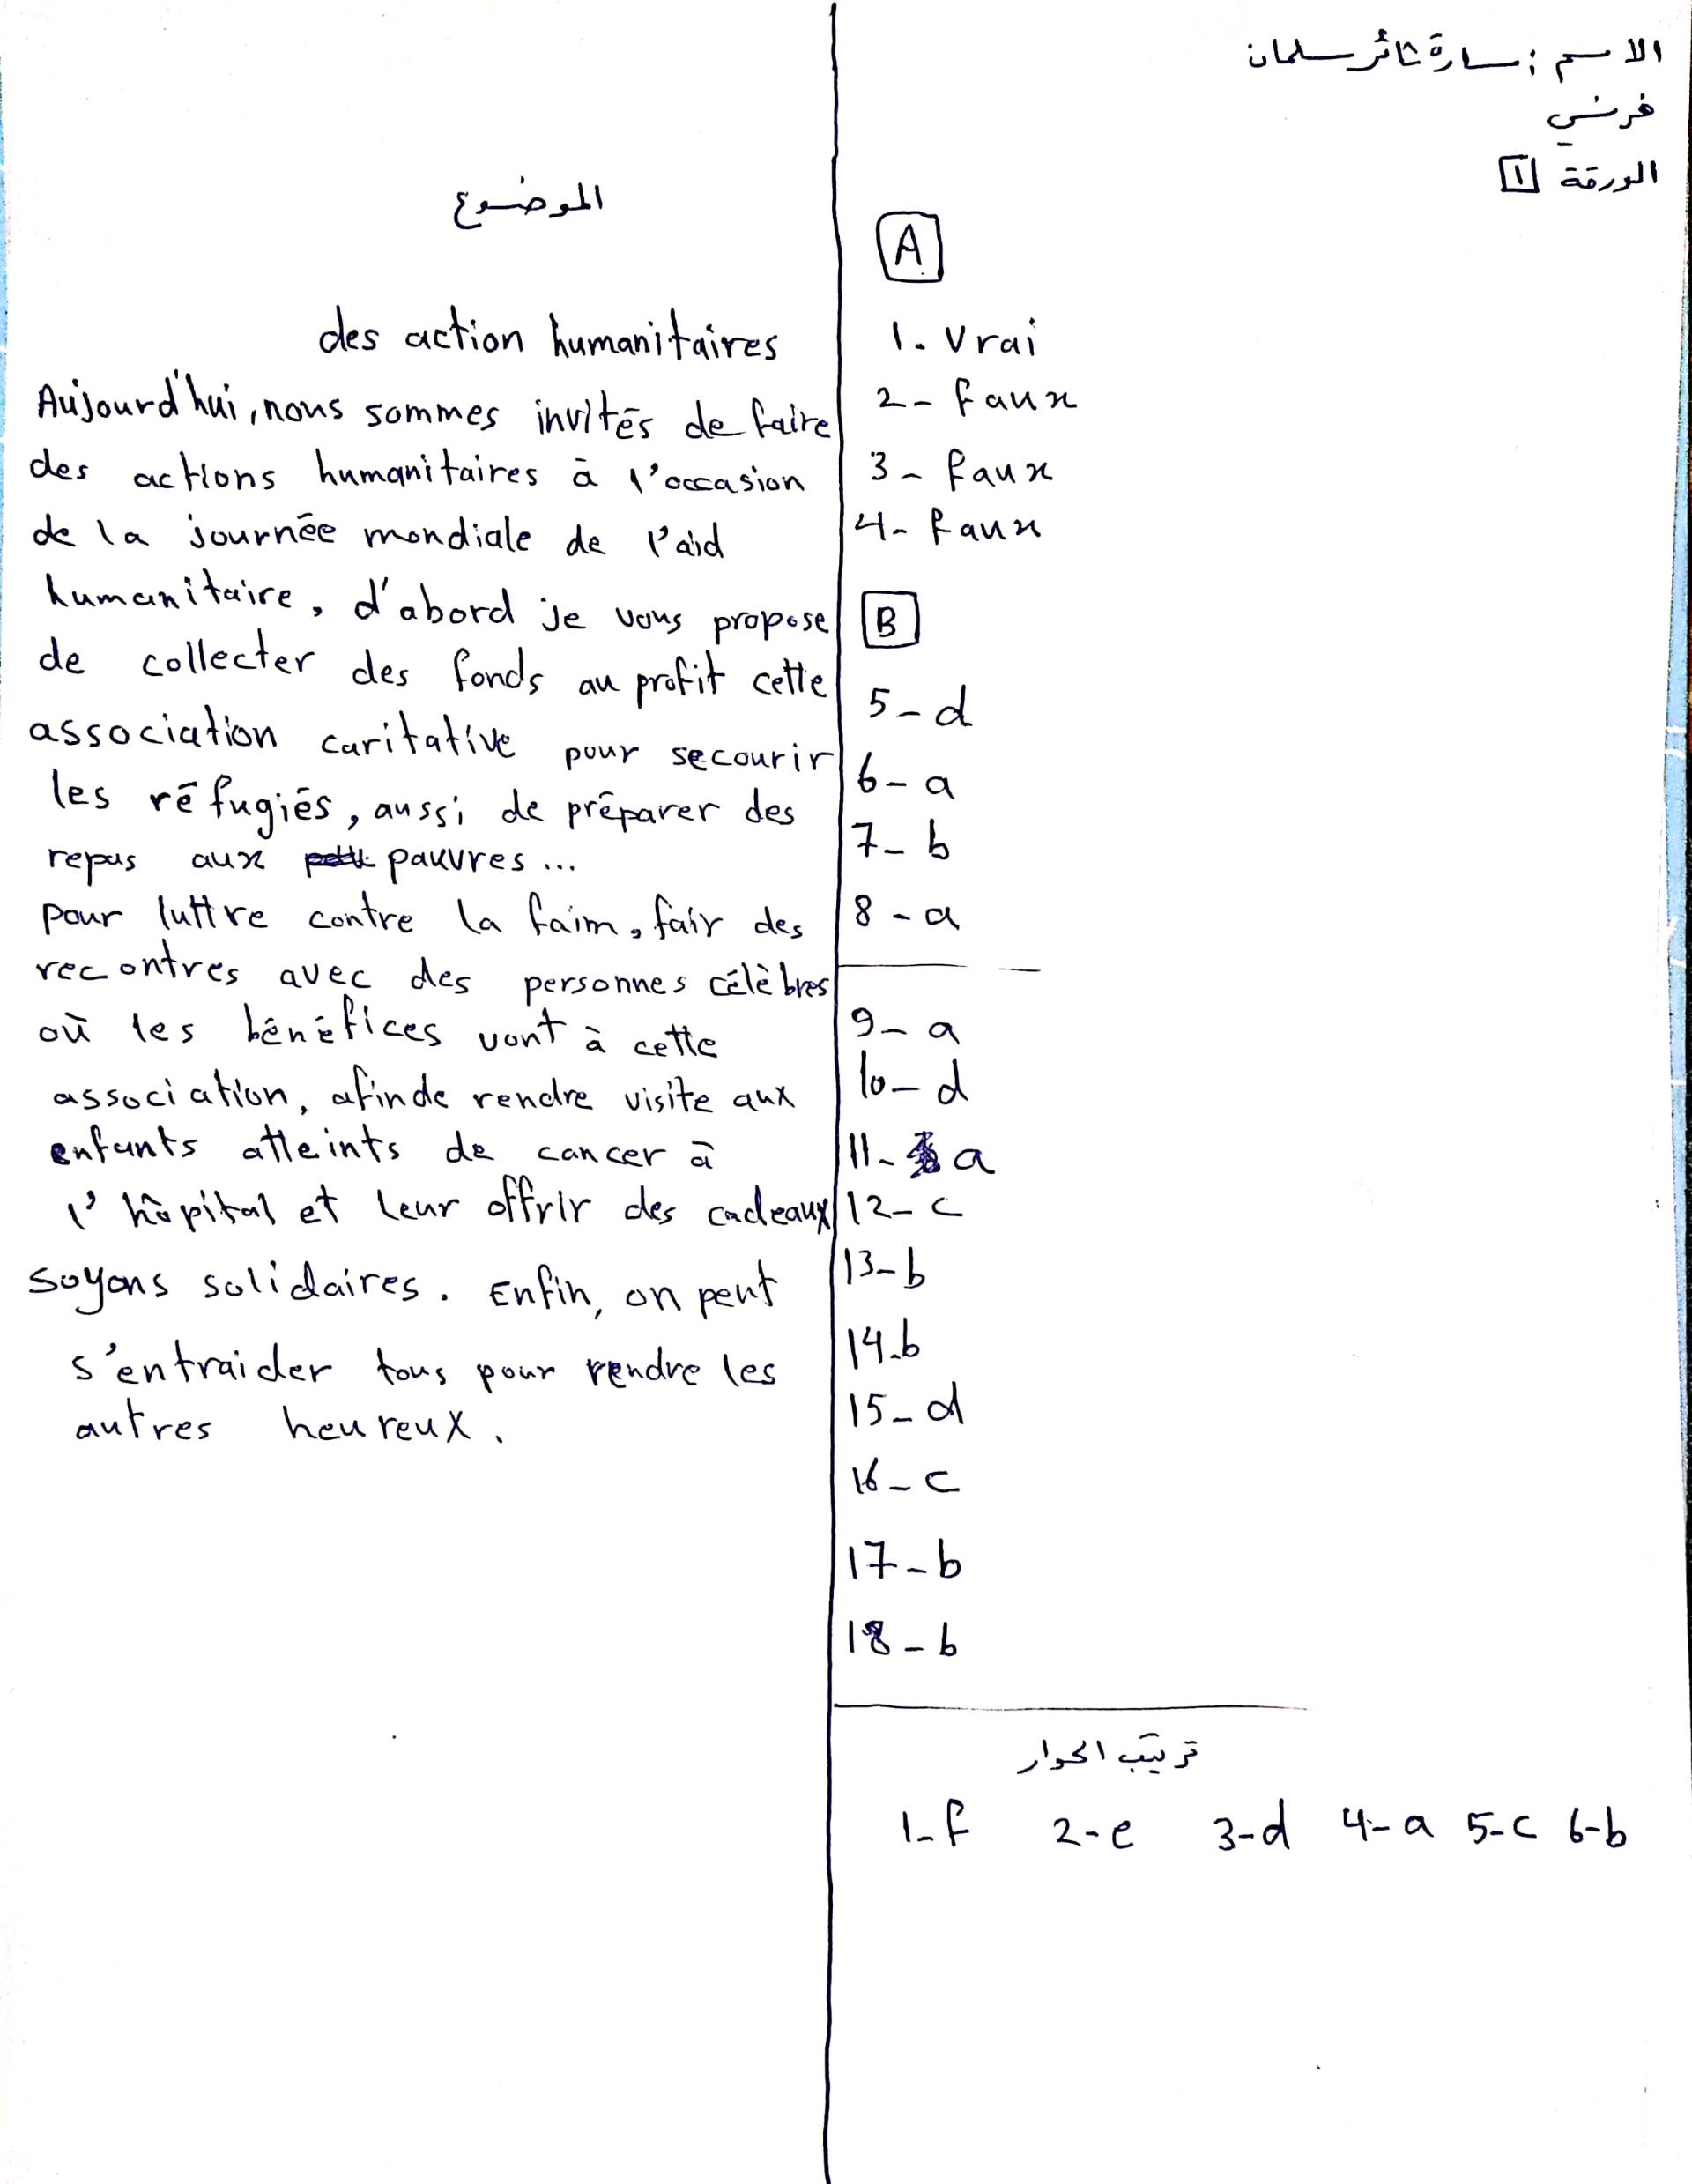 الاسم : سارة ثائر سلمان
فرنسي
الورقة 1
A
1. Vrai
2- faux
3- faux
4- faux
B
5-d
6-a
7-b
8-a
9-a
10-d
11- a
12-c
13-b
14.b
15-d
16-c
17-b
18-b
ترتيب الحوار
1-f 2-e 3-d 4-a 5-c 6-b
الموضوع
des action humanitaires
Aujourd'hui, nous sommes invités de faire
des actions humanitaires à l'occasion
de la journée mondiale de l'aid
humanitaire, d'abord je vous propose
de collecter des fonds au profit cette
association caritative pour secourir
les réfugiés, aussi de préparer des
repas aux pauvres ...
pour luttre contre la faim, fair des
recontres avec des personnes célèbres
où les bénéfices vont à cette
association, afinde rendre visite aux
enfants atteints de cancer à
l'hôpital et leur offrir des cadeaux
soyons solidaires. Enfin, on peut
s'entraider tous pour rendre les
autres heureux.